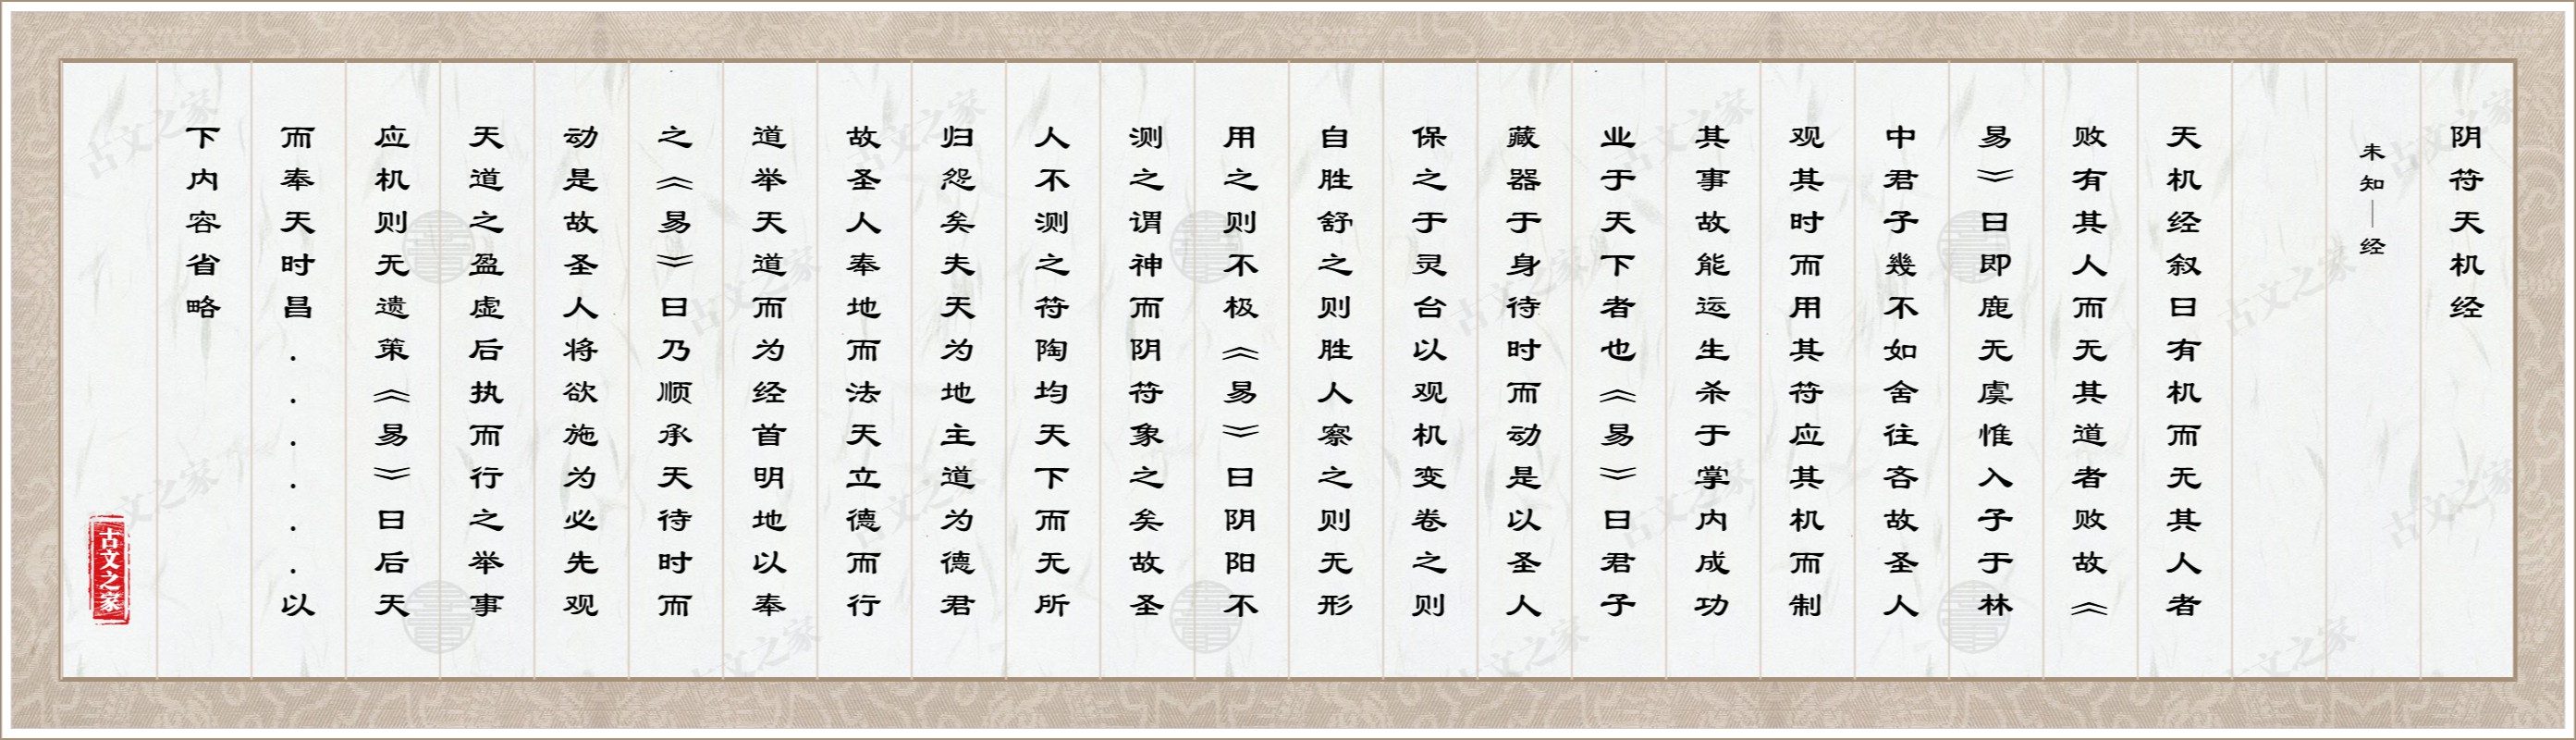 阴符天机经
未知｜经
天机经叙曰有机而无其人者
败有其人而无其道者败故《
易》曰即鹿无虞惟入子于林
中君子幾不如舍往吝故圣人
观其时而用其符应其机而制
其事故能运生杀于掌内成功
业于天下者也《易》曰君子
藏器于身待时而动是以圣人
保之于灵台以观机变卷之则
自胜舒之则胜人察之则无形
用之则不极《易》曰阴阳不
测之谓神而阴符象之矣故圣
人不测之符陶均天下而无所
归怨矣夫天为地主道为德君
故圣人奉地而法天立德而行
道举天道而为经首明地以奉
之《易》曰乃顺承天待时而
动是故圣人将欲施为必先观
天道之盈虚后执而行之举事
应机则无遗策《易》曰后天
而奉天时昌......以
下内容省略
古文之家